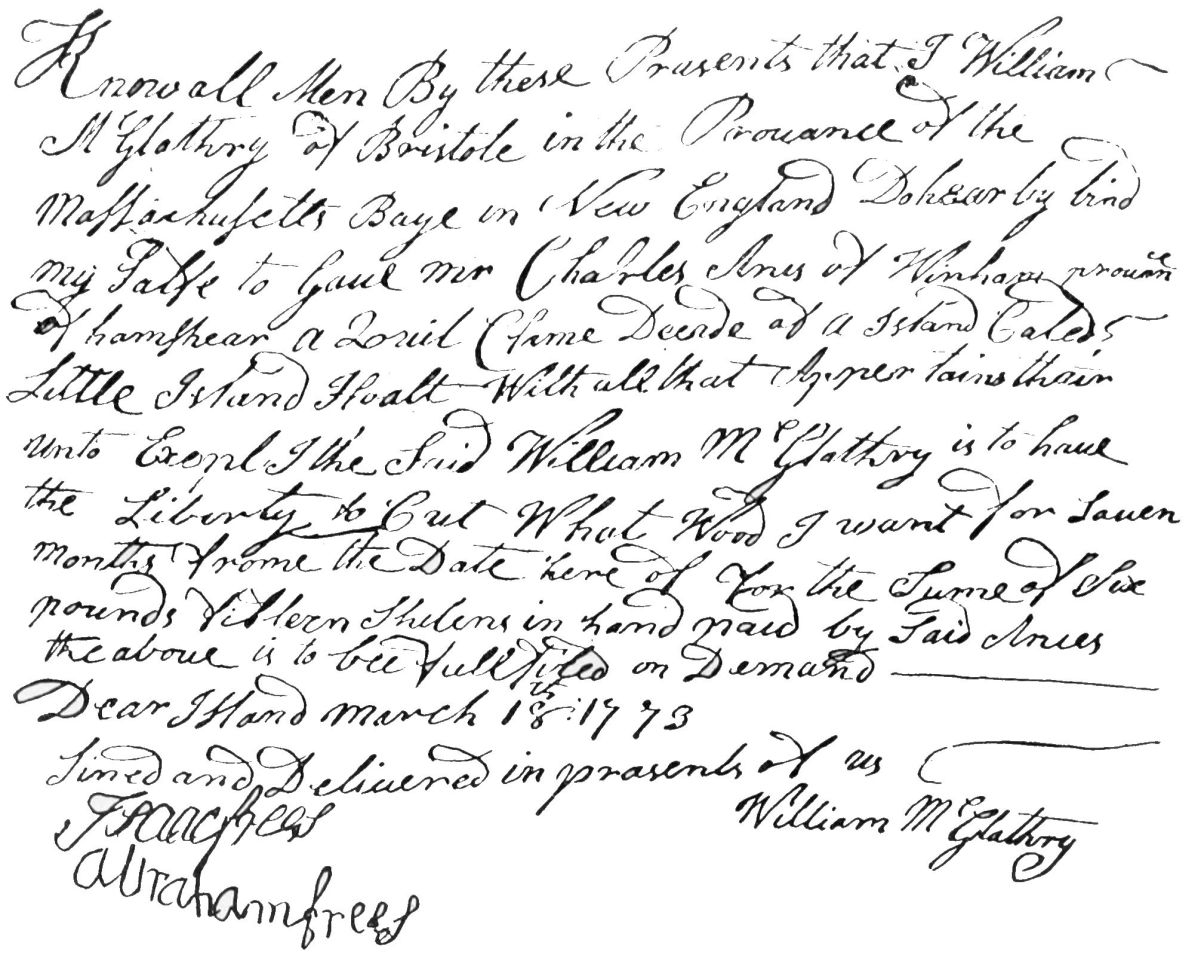 Know all Men By these Prasents that I William
McGlathry of Bristole in the Prouance of the
Massachusetts Baye in New England Do hear by bind
my Salfe to Gaue mr Charles Anis of Winham prouance
of hamshear a Quil Clame Deede of a Island Caled
Little Island Hoalt With all that Apper tains thair
unto Exepl I the Said William McGlathry is to haue
the Liberty to Cut What Wood I want for Sauen
months frome the Date here of for the Sume of Six
pounds fifteen Shelens in hand paid by Said Anies
the above is to bee full filed on Demand
Dear Island march 18th 1773
Sined and Delivered in prasents of us
William McGlathry
Isaac frees
abraham frees